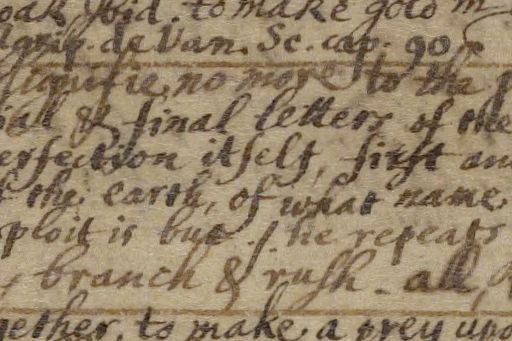 oak Ibid. to make gold m
Agrip. de Van. Sc. cap. 90
signifie no more to the
& final letters of the
erfection itself, first an
the earth, of what name
ploit is but. he repeats
branch & rush. all,
gether. to make a prey upo